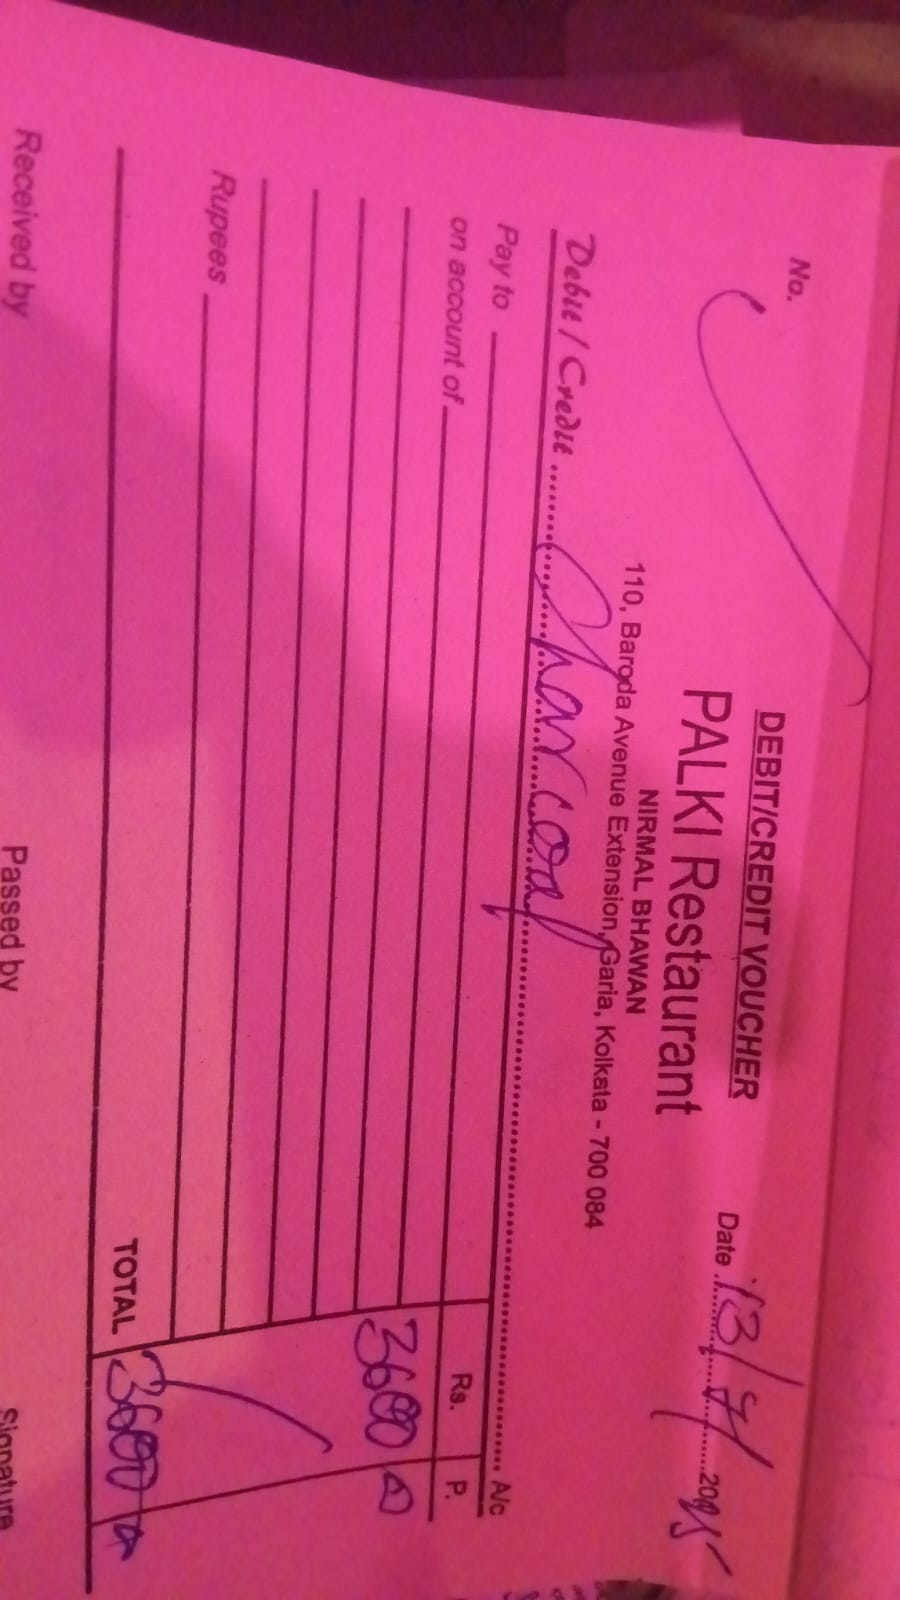 DEBIT/CREDIT VOUCHER
No.
PALKI Restaurant
Date 13/7/2025
NIRMAL BHAWAN
110, Baroda Avenue Extension, Garia, Kolkata - 700 084
Debit / Credit Charcoal A/c
Pay to Rs. P.
on account of
3600
Rupees
TOTAL 3600
Received by Passed by Signature